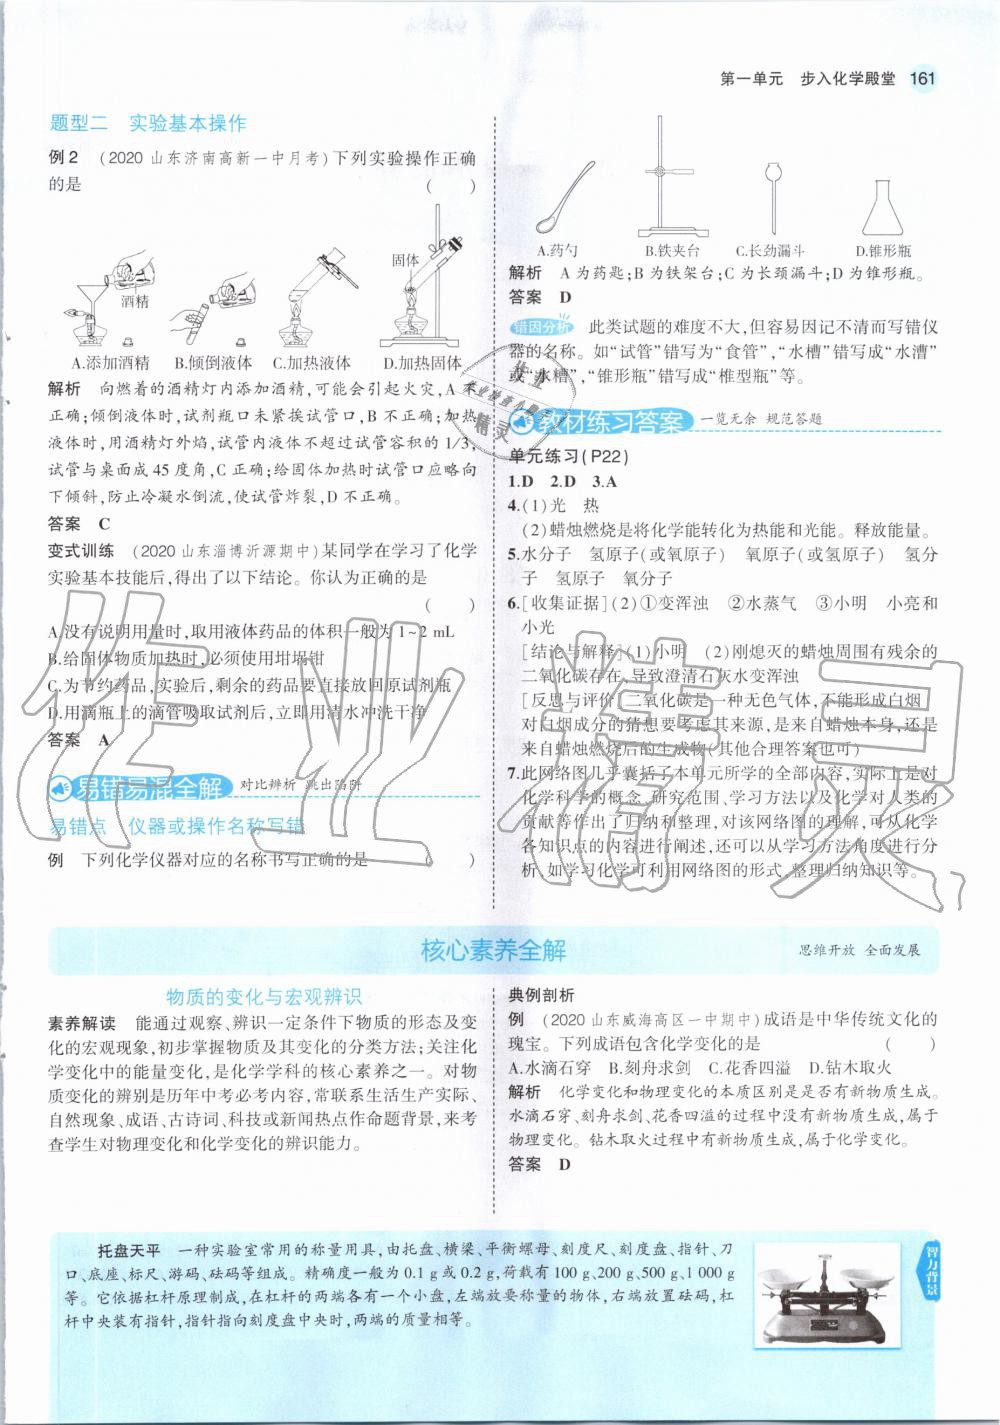 第一单元 步入化学殿堂 161
题型二 实验基本操作
例2 (2020山东济南高新一中月考)下列实验操作正确
的是 ( )
酒精
固体
A.添加酒精 B.倾倒液体 C.加热液体 D.加热固体
解析 向燃着的酒精灯内添加酒精,可能会引起火灾,A不
正确;倾倒液体时,试剂瓶口未紧挨试管口,B不正确;加热
液体时,用酒精灯外焰,试管内液体不超过试管容积的1/3,
试管与桌面成45度角,C正确;给固体加热时试管口应略向
下倾斜,防止冷凝水倒流,使试管炸裂,D不正确。
答案 C
变式训练 (2020山东淄博沂源期中)某同学在学习了化学
实验基本技能后,得出了以下结论。你认为正确的是
( )
A.没有说明用量时,取用液体药品的体积一般为1~2 mL
B.给固体物质加热时,必须使用坩埚钳
C.为节约药品,实验后,剩余的药品要直接放回原试剂瓶
D.用滴瓶上的滴管吸取试剂后,立即用清水冲洗干净
答案 A
易错易混全解 对比辨析 跳出陷阱
易错点 仪器或操作名称写错
例 下列化学仪器对应的名称书写正确的是 ( )
A.药勺 B.铁夹台 C.长劲漏斗 D.锥形瓶
解析 A为药匙;B为铁架台;C为长颈漏斗;D为锥形瓶。
答案 D
错因分析 此类试题的难度不大,但容易因记不清而写错仪
器的名称。如“试管”错写为“食管”,“水槽”错写成“水漕”
或“水糟”,“锥形瓶”错写成“椎型瓶”等。
教材练习答案 一览无余 规范答题
单元练习(P22)
1.D 2.D 3.A
4.(1)光 热
(2)蜡烛燃烧是将化学能转化为热能和光能。释放能量。
5.水分子 氢原子(或氧原子) 氧原子(或氢原子) 氢分
子 氢原子 氧分子
6.[收集证据](2)①变浑浊 ②水蒸气 ③小明 小亮和
小光
[结论与解释](1)小明 (2)刚熄灭的蜡烛周围有残余的
二氧化碳存在,导致澄清石灰水变浑浊
[反思与评价]二氧化碳是一种无色气体,不能形成白烟
对白烟成分的猜想要考虑其来源,是来自蜡烛本身,还是
来自蜡烛燃烧后的生成物(其他合理答案也可)
7.此网络图几乎囊括了本单元所学的全部内容,实际上是对
化学科学的概念、研究范围、学习方法以及化学对人类的
贡献等作出了归纳和整理,对该网络图的理解,可从化学
各知识点的内容进行阐述,还可以从学习方法角度进行分
析,如学习化学可利用网络图的形式,整理归纳知识等。
核心素养全解 思维开放 全面发展
物质的变化与宏观辨识
素养解读 能通过观察、辨识一定条件下物质的形态及变
化的宏观现象,初步掌握物质及其变化的分类方法;关注化
学变化中的能量变化,是化学学科的核心素养之一。对物
质变化的辨别是历年中考必考内容,常联系生活生产实际、
自然现象、成语、古诗词、科技或新闻热点作命题背景,来考
查学生对物理变化和化学变化的辨识能力。
典例剖析
例 (2020山东威海高区一中期中)成语是中华传统文化的
瑰宝。下列成语包含化学变化的是 ( )
A.水滴石穿 B.刻舟求剑 C.花香四溢 D.钻木取火
解析 化学变化和物理变化的本质区别是是否有新物质生成。
水滴石穿、刻舟求剑、花香四溢的过程中没有新物质生成,属于
物理变化。钻木取火过程中有新物质生成,属于化学变化。
答案 D
托盘天平 一种实验室常用的称量用具,由托盘、横梁、平衡螺母、刻度尺、刻度盘、指针、刀
口、底座、标尺、游码、砝码等组成。精确度一般为0.1 g或0.2 g,荷载有100 g、200 g、500 g、1 000 g
等。它依据杠杆原理制成,在杠杆的两端各有一个小盘,左端放要称量的物体,右端放置砝码,杠
杆中央装有指针,指针指向刻度盘中央时,两端的质量相等。
智力背景
作业精灵